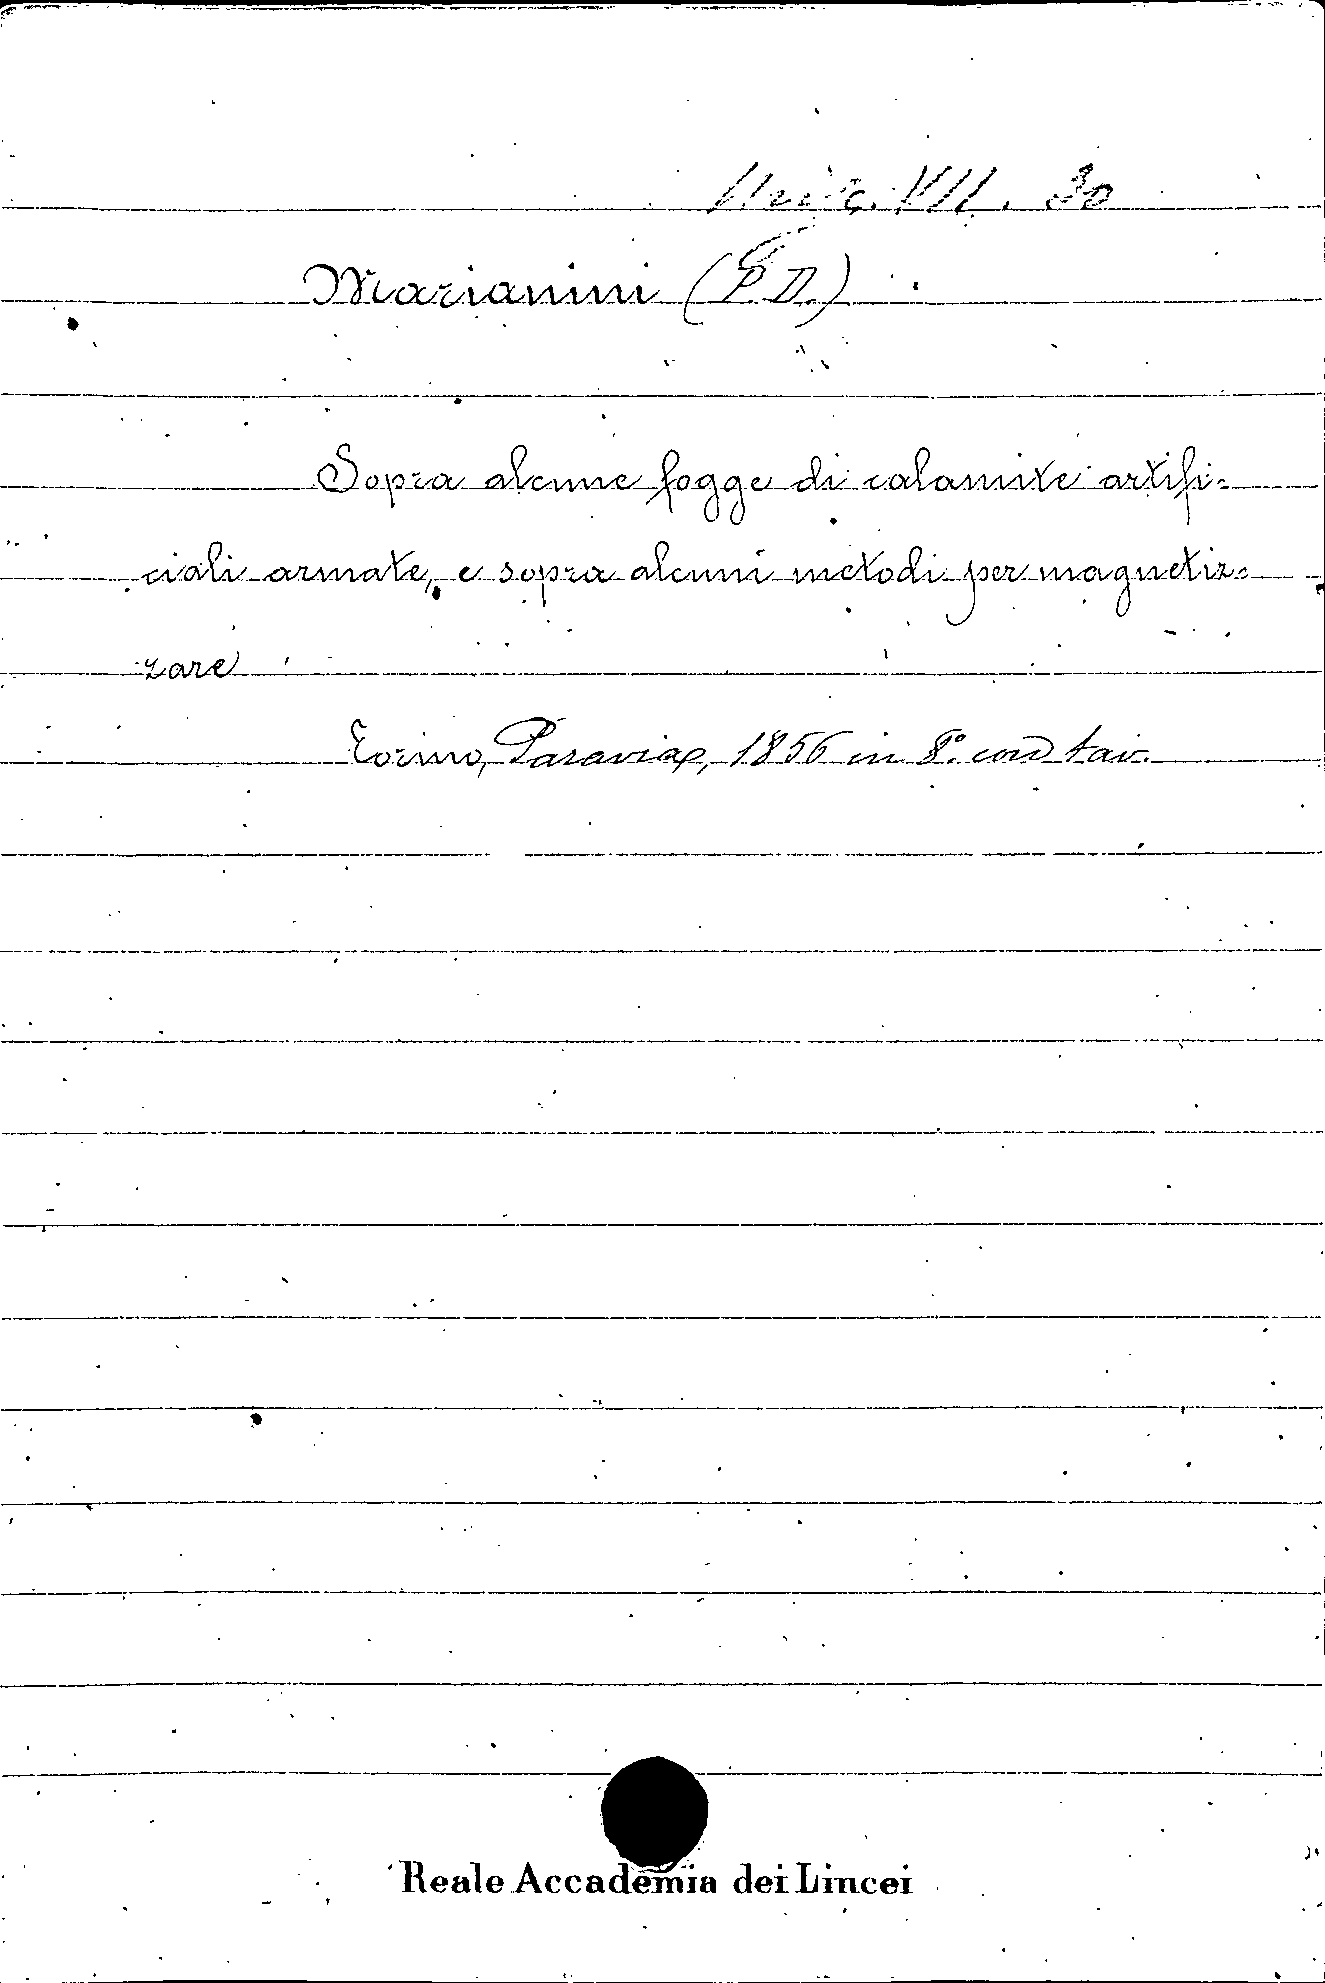 VII. 30
Marianini (P. D.)
Sopra alcune fogge di calamite artifi-
ciali armate, e sopra alcuni metodi per magnetiz-
zare
Torino, Paravia, 1856 in 8°. con tav.
Reale Accademia dei Lincei